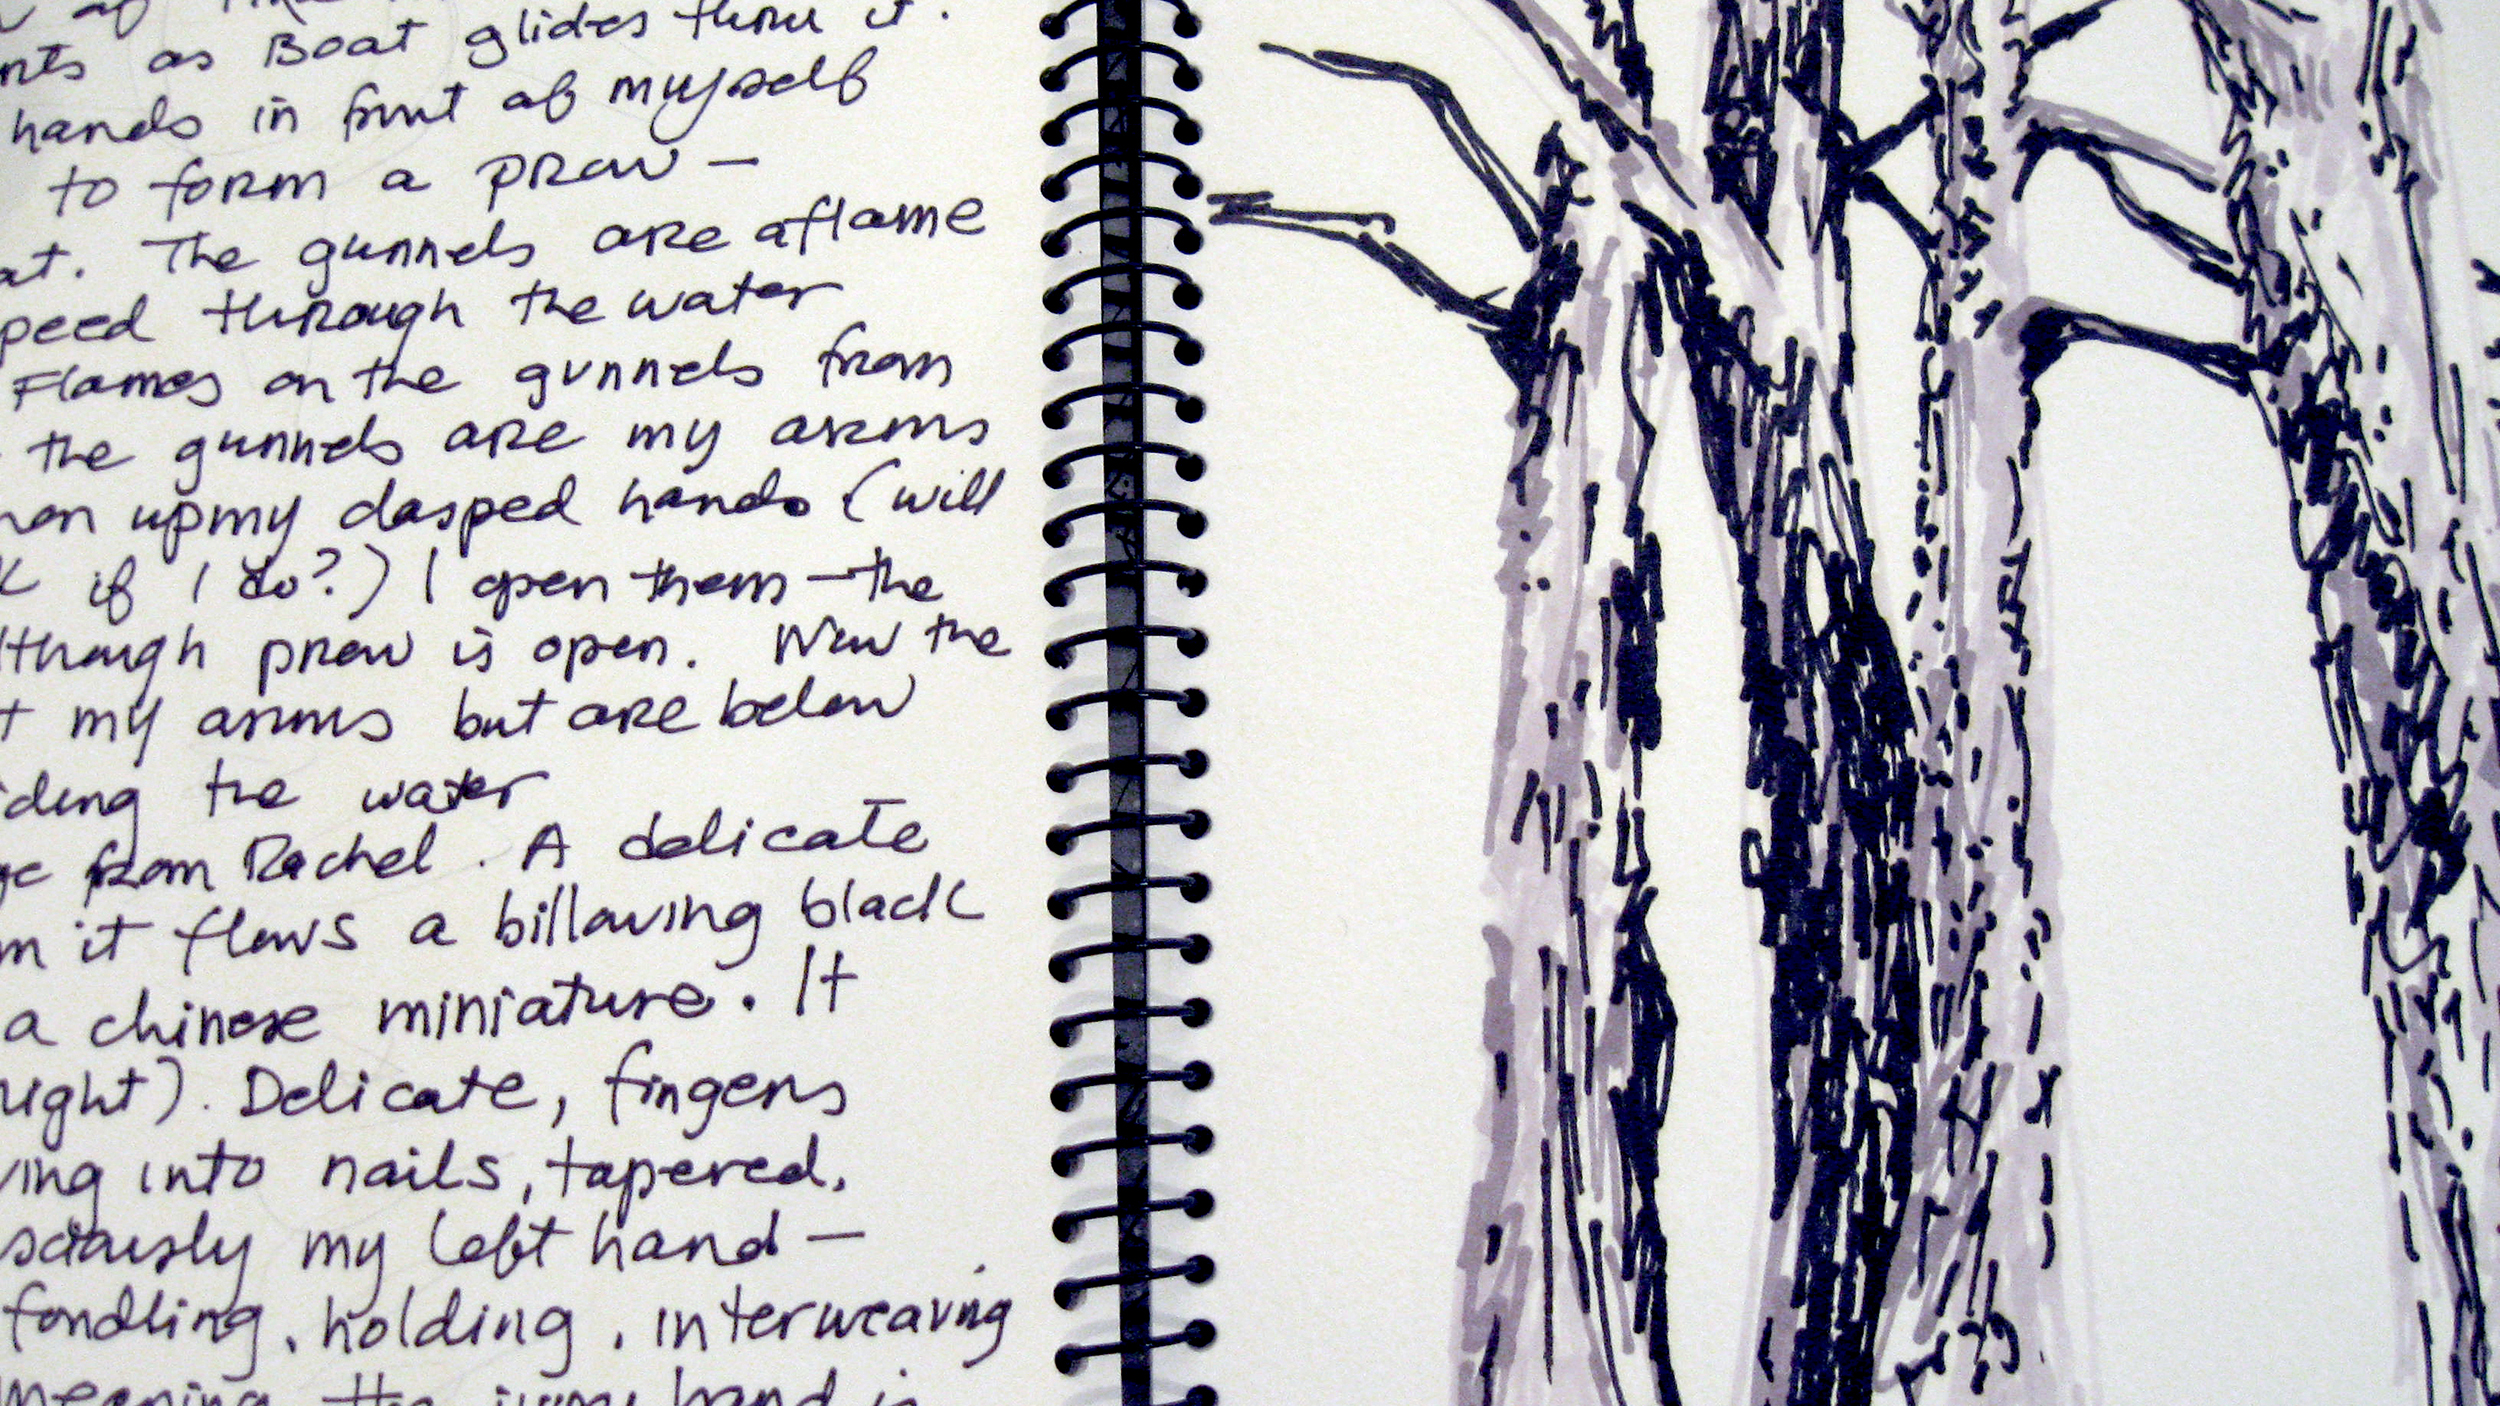 as Boat glides thru it.
hands in front of myself
to form a prow —
at. The gunnels are aflame
peed through the water
Flames on the gunnels from
the gunnels are my arms
upmy clasped hands (will
if I do?) I open them — the
though prow is open. Now the
my arms but are below
ding the water
from Rachel. A delicate
it flows a billowing black
a chinese miniature. It
right). Delicate, fingers
ving into nails, tapered.
sciously my left hand —
fondling, holding, interweaving
hand is